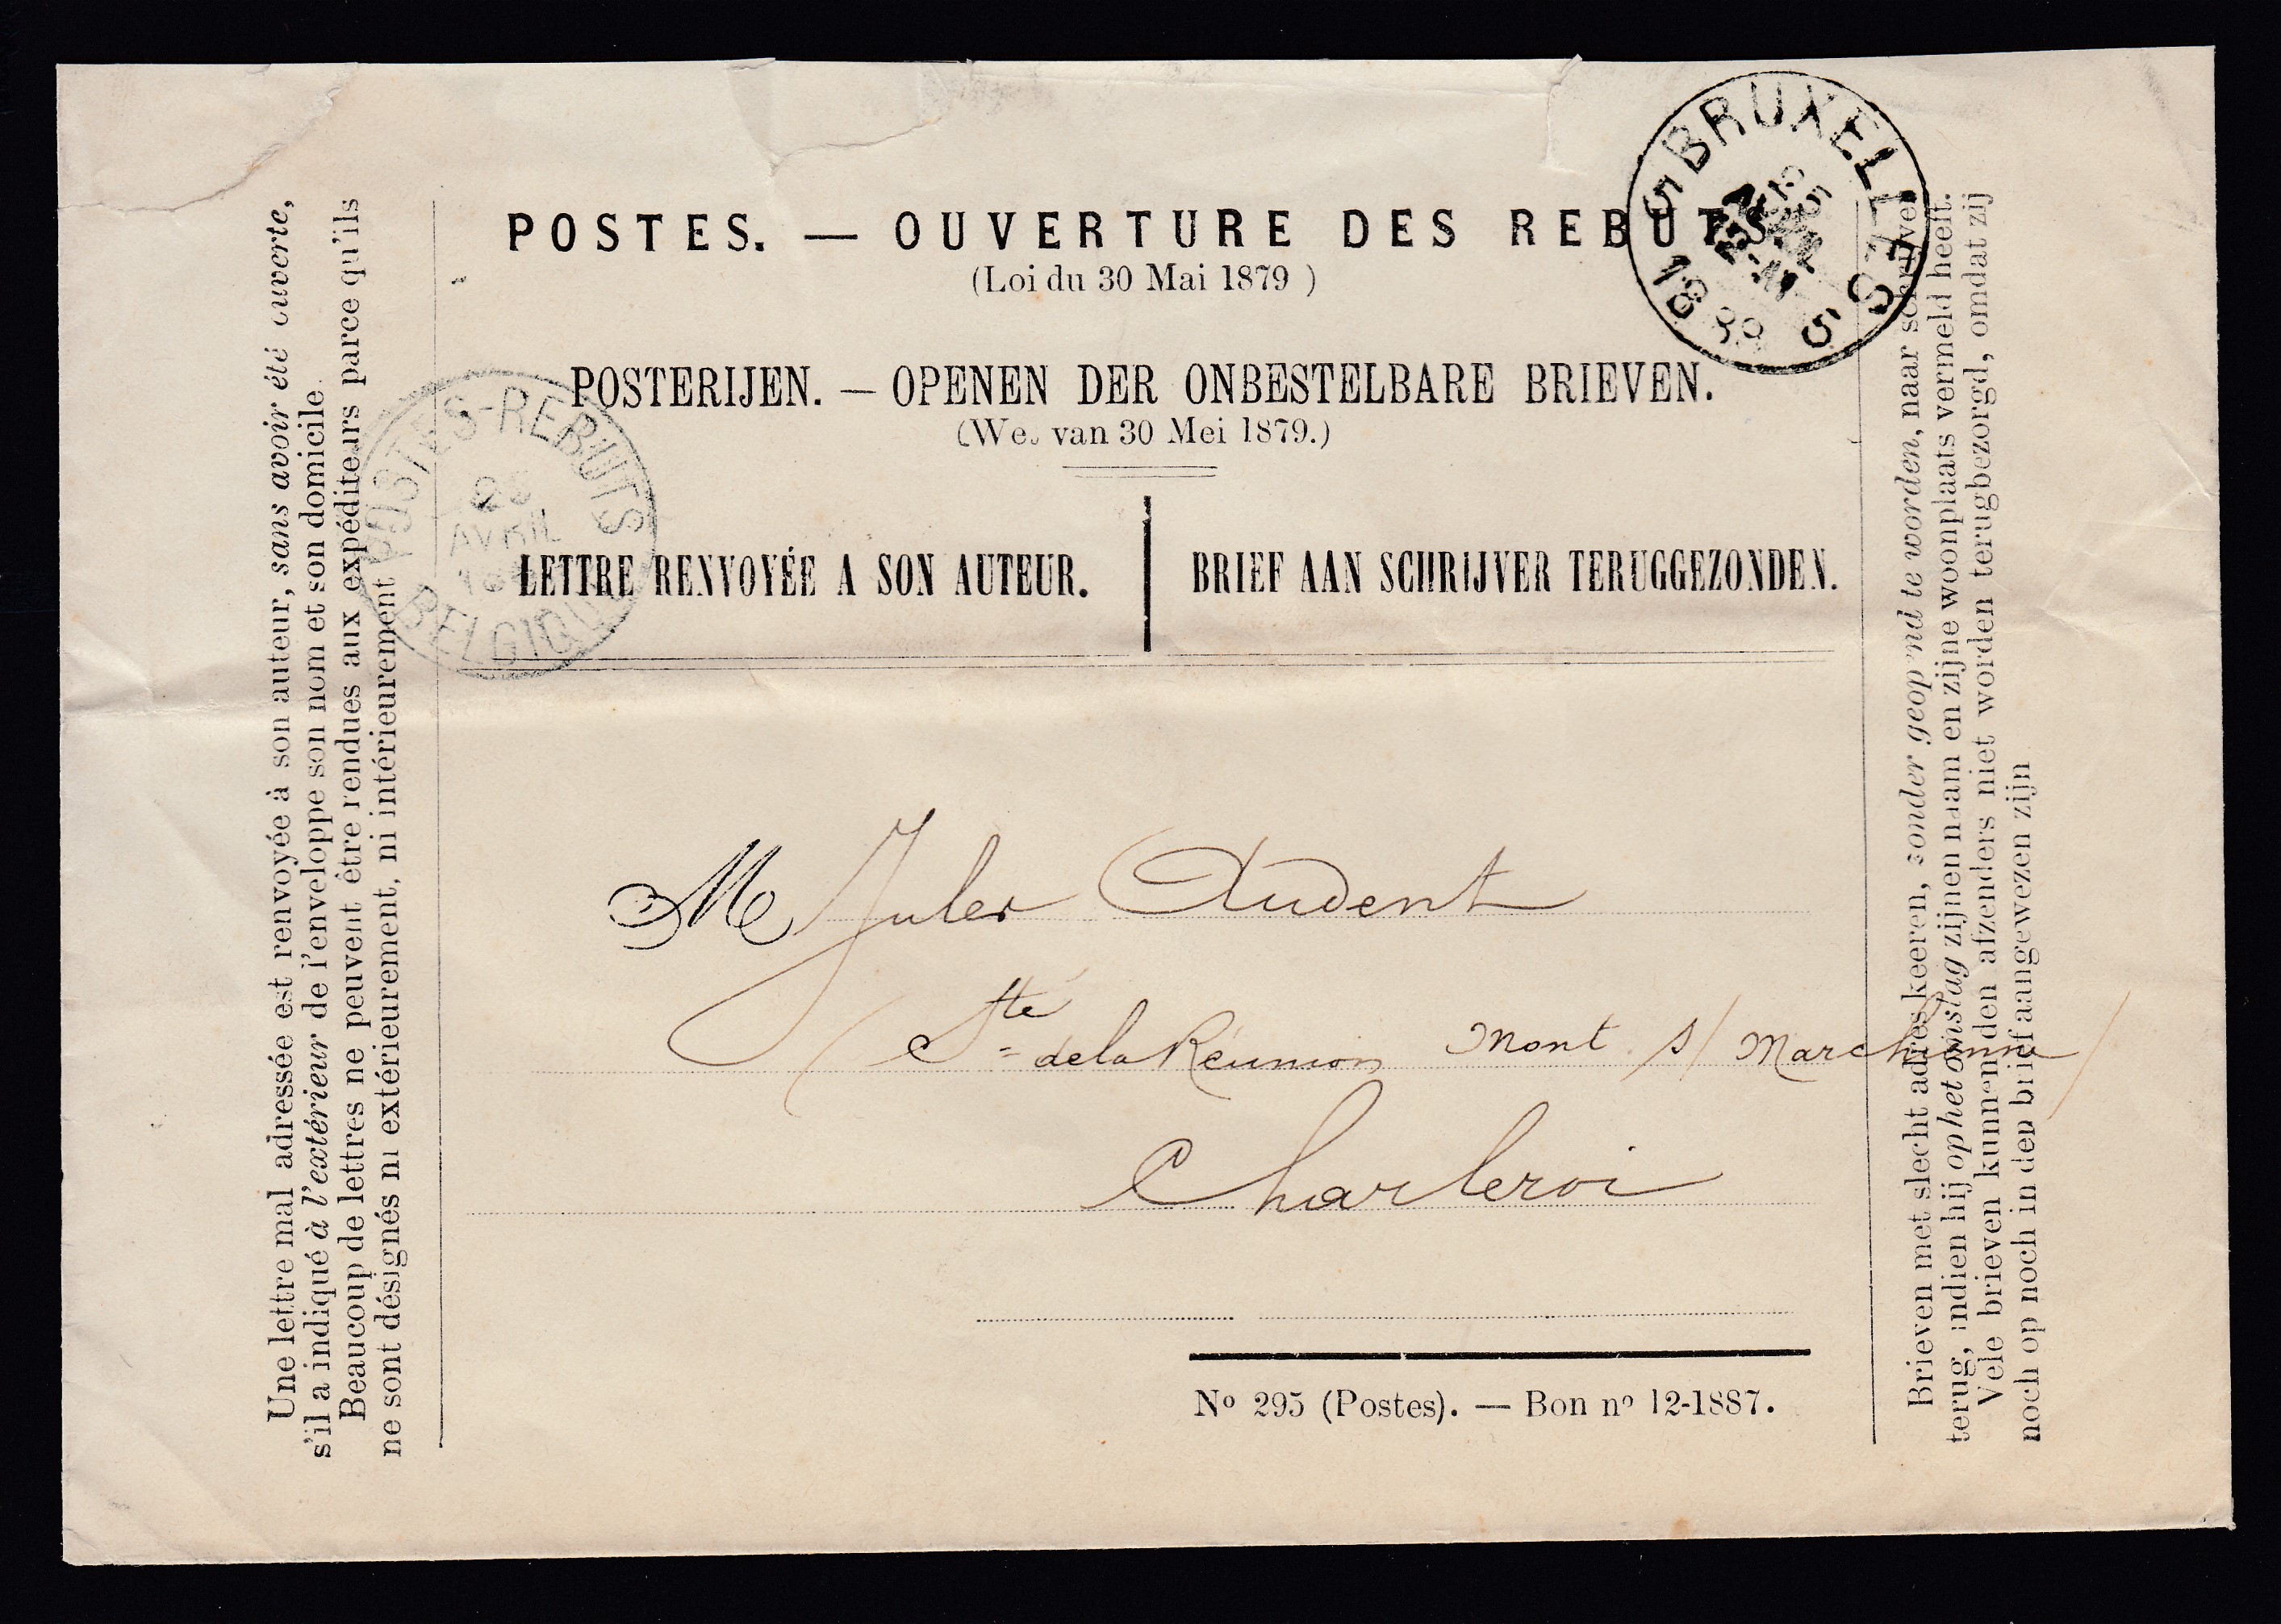 Une lettre mal adressée est renvoyée à son auteur, sans avoir été ouverte,
s'il a indiqué à l'extérieur de l'enveloppe son nom et son domicile.
Beaucoup de lettres ne peuvent être rendues aux expéditeurs parce qu'ils
ne sont désignés ni extérieurement, ni intérieurement
POSTES. — OUVERTURE DES REBUTS.
(Loi du 30 Mai 1879 )
POSTERIJEN. — OPENEN DER ONBESTELBARE BRIEVEN.
(We. van 30 Mei 1879.)
LETTRE RENVOYÉE A SON AUTEUR.
BRIEF AAN SCHRIJVER TERUGGEZONDEN.
5 BRUXELLES 5
1889
POSTES-REBUTS
25
AVRIL
BELGIQUE
M Jules Audent
Sté de la Réunion Mont s/ Marchienne
Charleroi
Nº 295 (Postes). — Bon nº 12-1887.
Brieven met slecht adres keeren, zonder geopend te worden, naar schrijver
terug, indien hij op het omslag zijnen naam en zijne woonplaats vermeld heeft.
Vele brieven kunnen den afzenders niet worden terugbezorgd, omdat zij
noch op noch in den brief aangewezen zijn